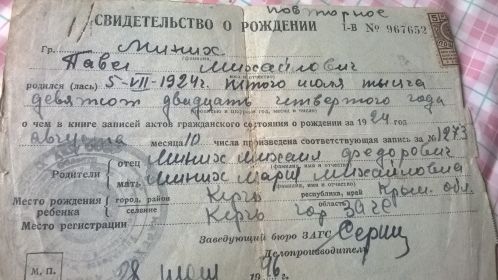 повторное
СВИДЕТЕЛЬСТВО О РОЖДЕНИИ I-В № 967652
Гр. Миних
(фамилия,
Павел Михайлович
имя и отчество)
родился (лась) 5-VII-1924г. пятого июля тысяча
девятсот двадцать четвертого года
о чем в книге записей актов гражданского состояния о рождении за 1924 год
Августа месяца 10 числа произведена соответствующая запись за № 1273
Родители отец Миних Михаил Федорович
(фамилия, имя и отчество)
мать Миних Мария Михайловна
(фамилия, имя и отчество)
Место рождения ребенка город, район Керчь республика, край Крым. обл.
селение область
Место регистрации Керчь гор ЗАГС
Заведующий бюро ЗАГС
Делопроизводитель
М. П. 28